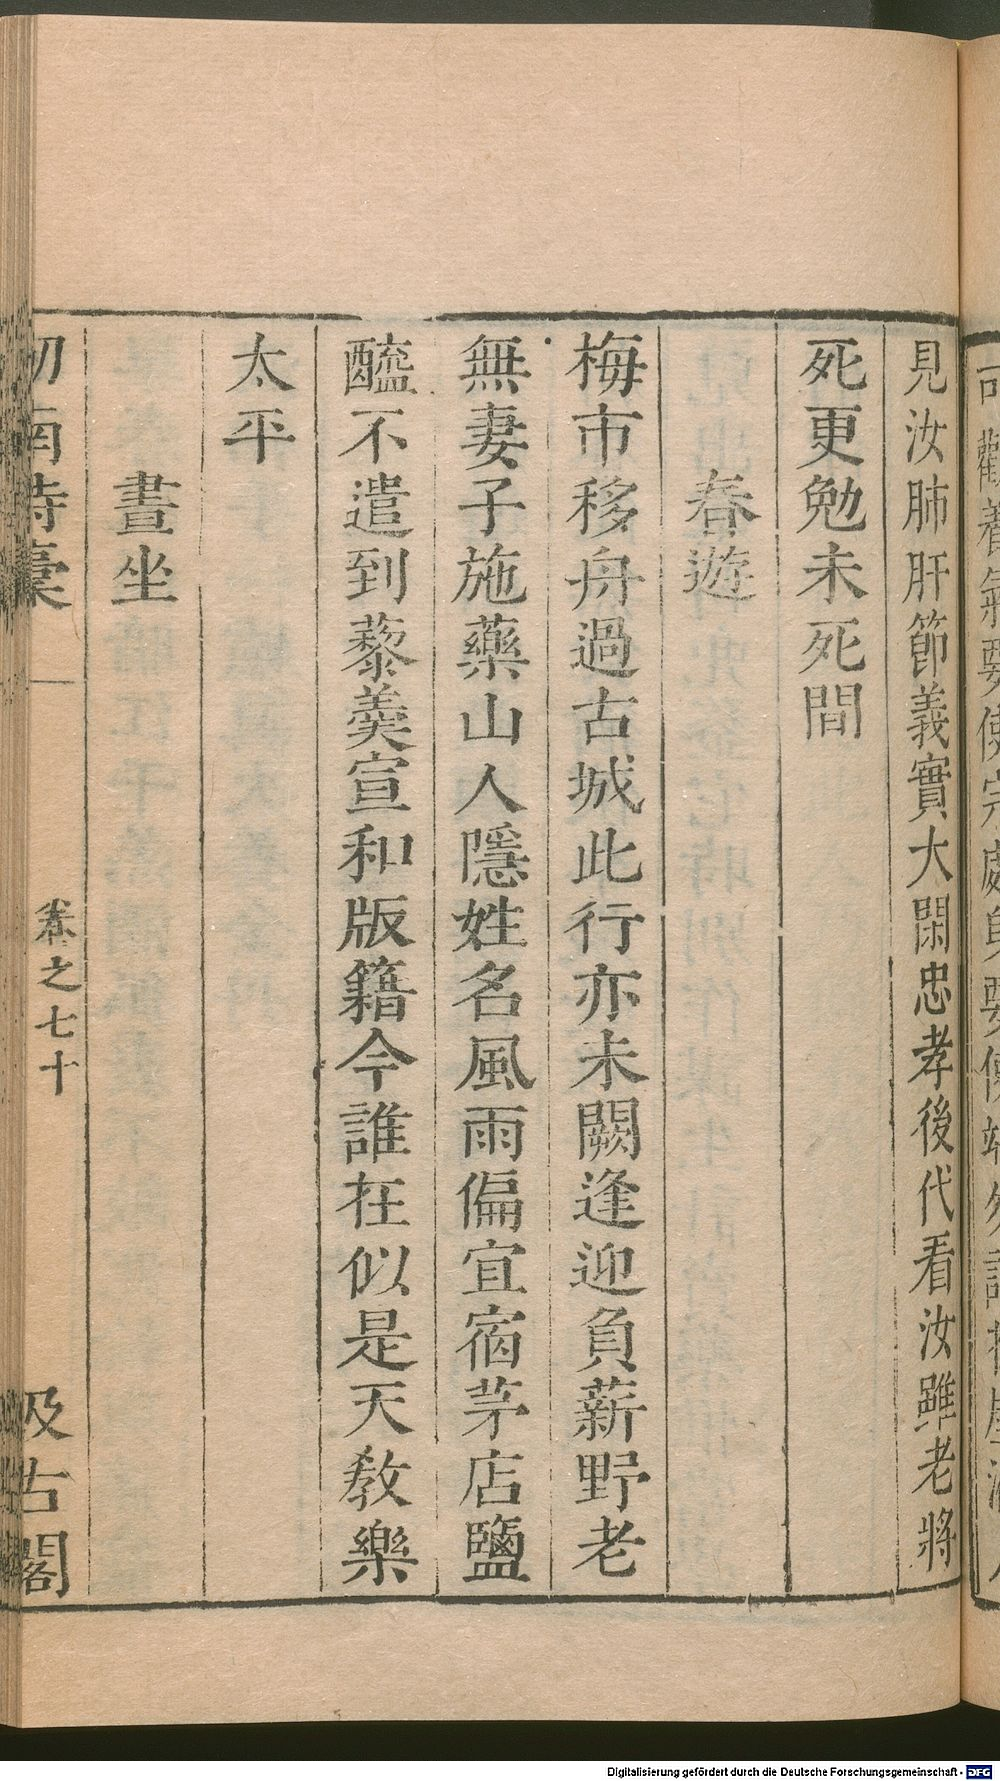 見汝肺肝節義實大閑忠孝後代看汝雖老將
死更勉未死間
春遊
梅市移舟過古城此行亦未闕逢迎負薪野老
無妻子施藥山人隱姓名風雨偏宜宿茅店鹽
醯不遣到藜羹宣和版籍今誰在似是天教樂
太平
晝坐
卷之七十
汲古閣
Digitalisierung gefördert durch die Deutsche Forschungsgemeinschaft - DFG